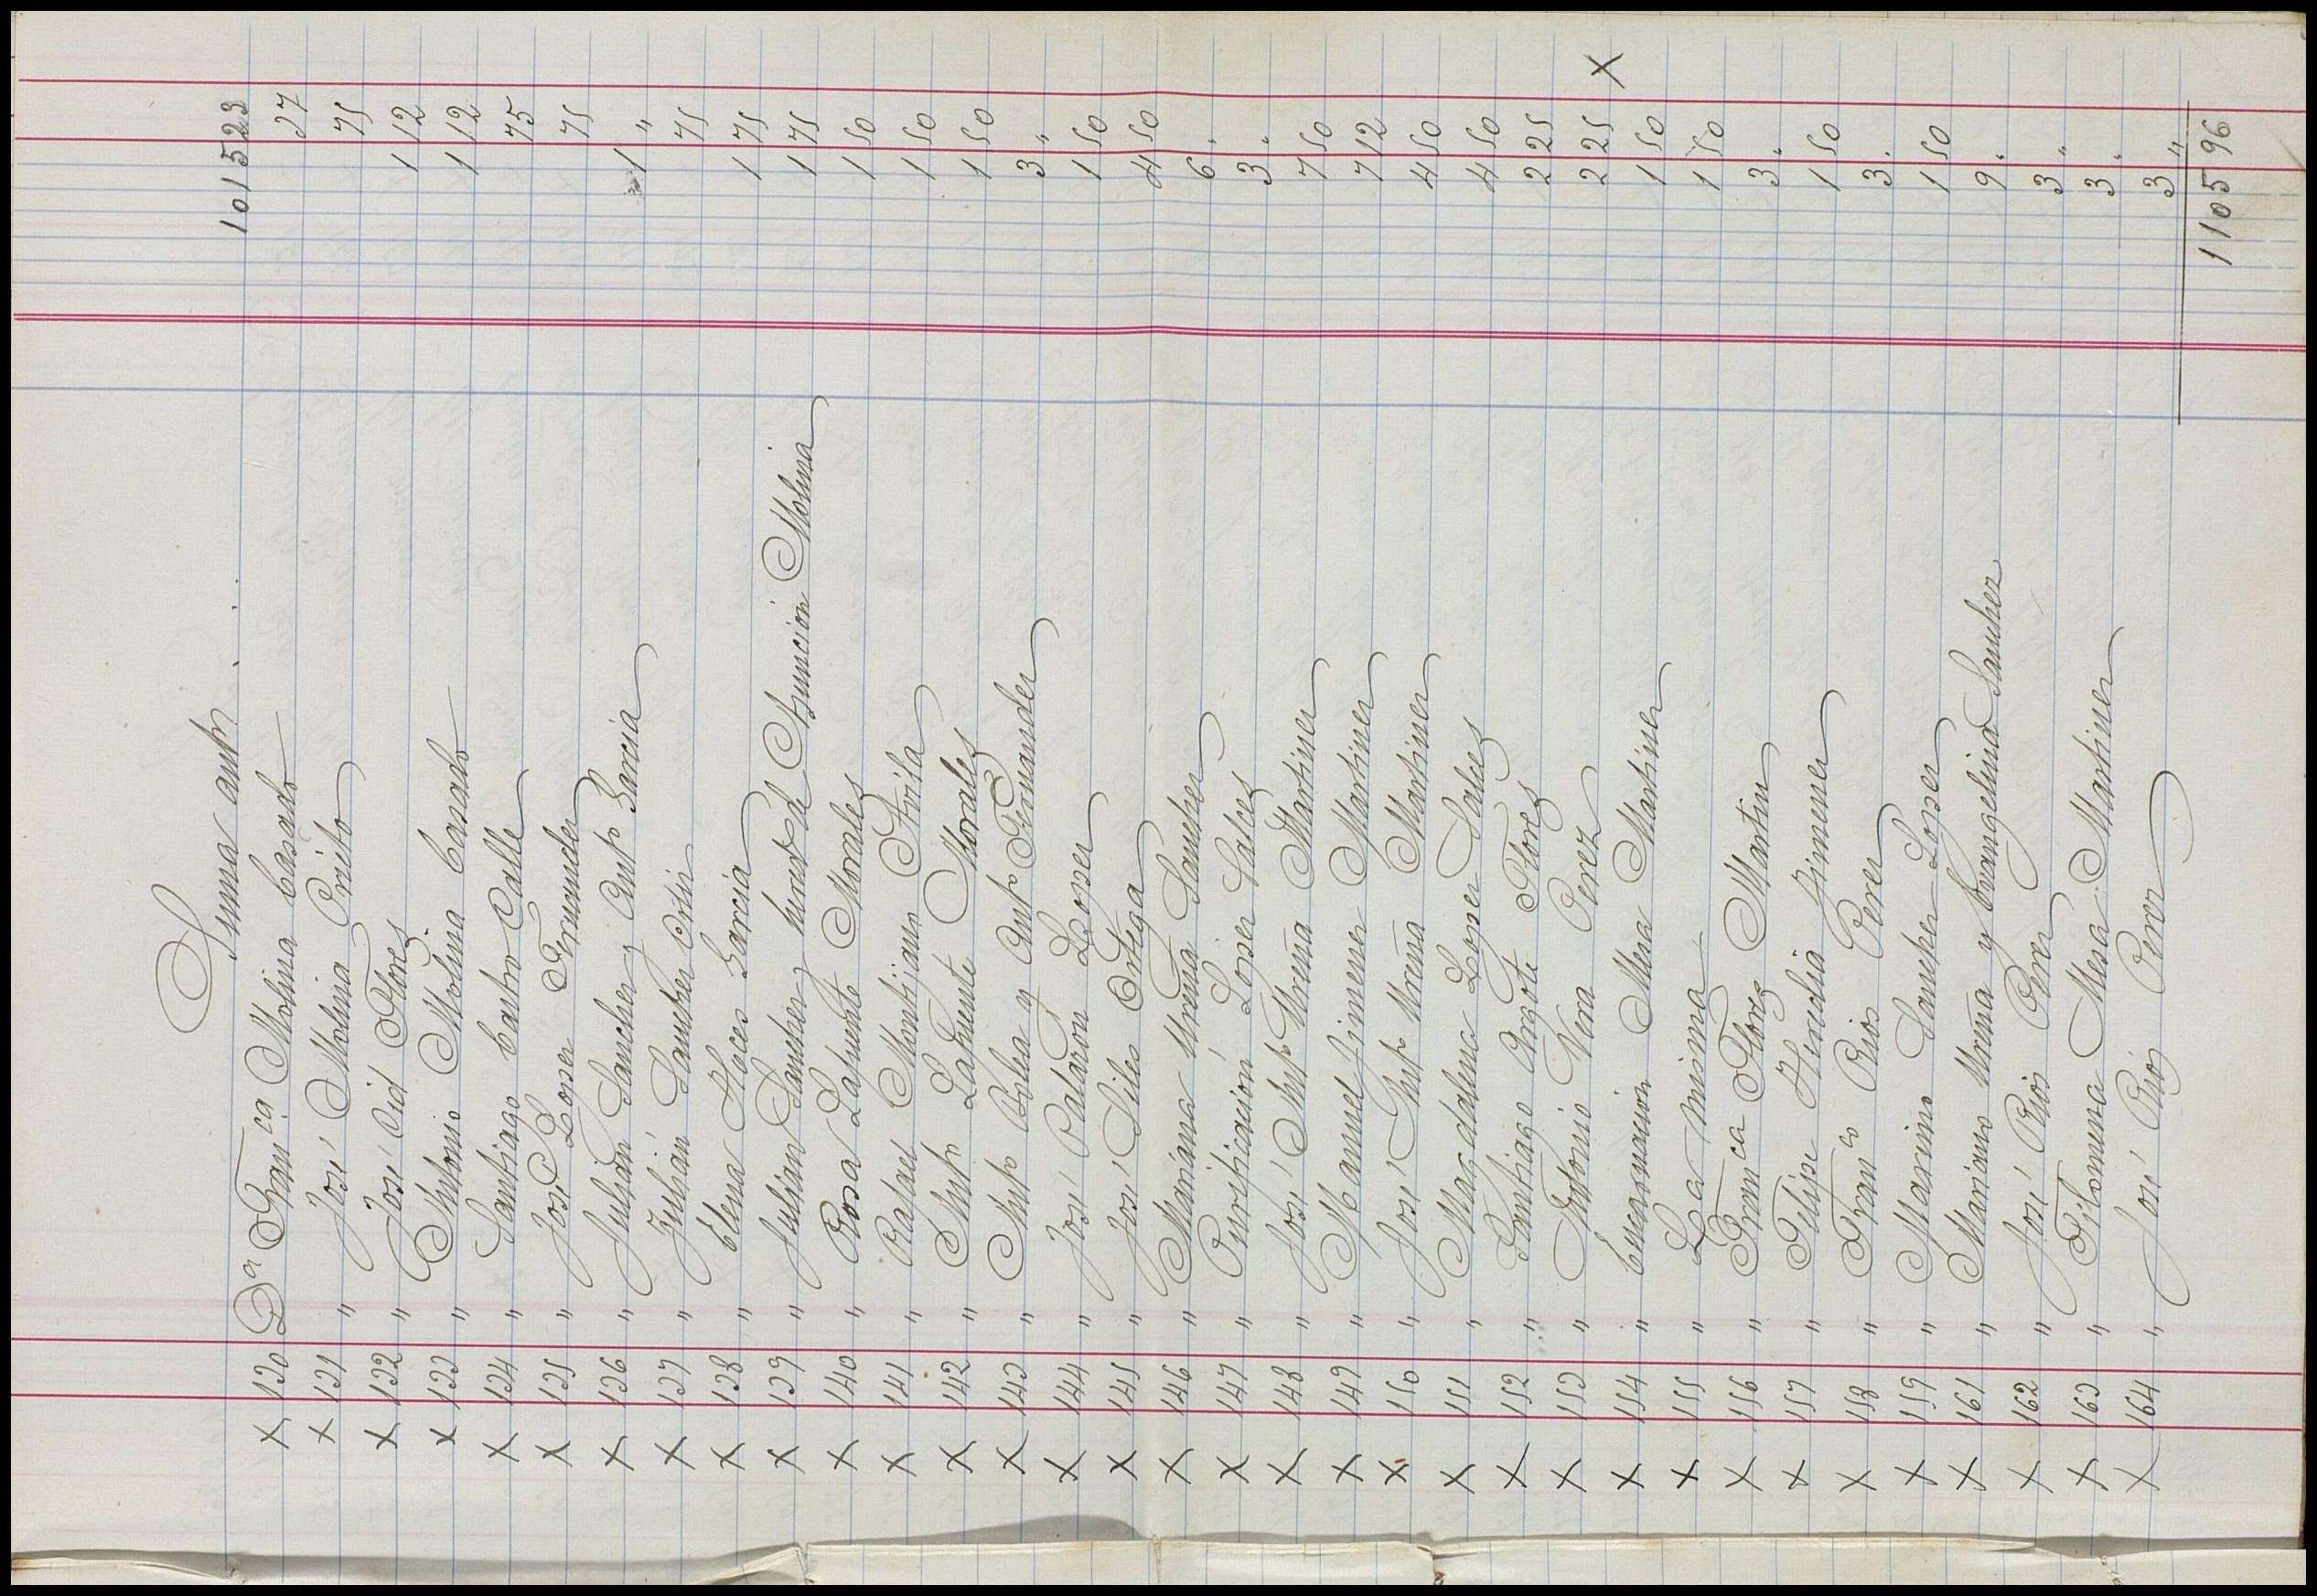 Suma antr. . . . 1015 23
X 130 Dª Franca Molina Casado 37
X 131 " José Molina Prieto 75
X 132 " José Cid Flores 1 12
X 133 " Antonio Molina Casado 1 12
X 134 " Santiago Castro Calle 75
X 135 " José Lopez Fernandez 75
X 136 " Julián Sanchez y Antº Garcia 1 "
X 137 " Julián Sanchez Ortiz 75
X 138 " Elena Hoces Garcia 1 75
X 139 " Julian Sanchez, hered de Asunción Molina 1 75
X 140 " Rosa Lafuente Morales 1 50
X 141 " Rafael Montijano Avila 1 50
X 142 " Antº Lafuente Morales 1 50
X 143 " Antº Bolea y Antº Fernandez 3 "
X 144 " José Palazon Lopez 1 50
X 145 " José Siles Ortega 4 50
X 146 " Mariana Ureña Sanchez 6 "
X 147 " Purificación Lopez Salces 3 "
X 148 " José Antº Ureña Martinez 7 50
X 149 " Manuel Jimenez Martinez 7 12
X 150 " José Antº Ureña Martinez 4 50
X 151 " Magdalena Lopez Salces 4 50
X 152 " Santiago Argote Flores 2 25
X 153 " Antonio Vera Perez 2 25 X
X 154 " Encarnación Mesa Martinez 1 50
X 155 " La misma 1 50
X 156 " Franca Flores Martin 3 "
X 157 " Felipe Heredia Jimenez 1 50
X 158 " Franco Rios Perez 3 "
X 159 " Marino Sanchez Lopez 1 50
X 161 " Mariano Ureña y Evangelina Sanchez 9 "
X 162 " José Rios Perez 3 "
X 163 " Filomena Mesa Martinez 3 "
X 164 " José Rios Perez 3 "
1105 96